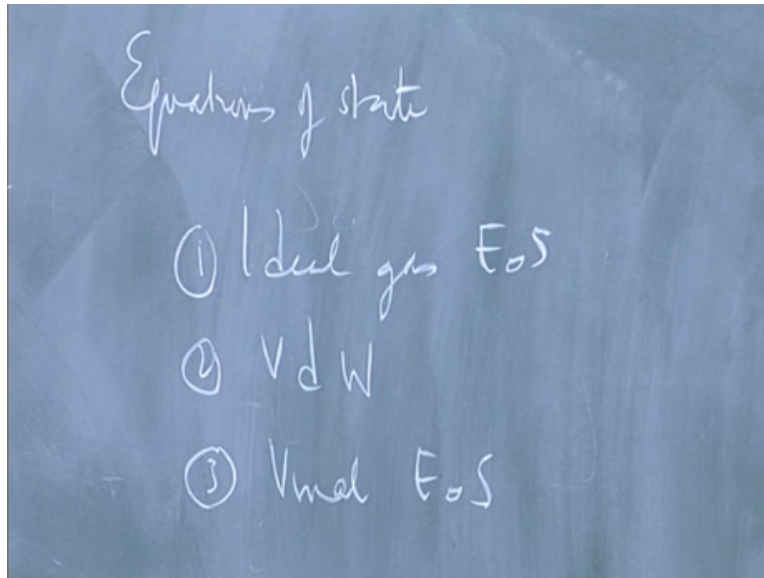 Equations of state
① Ideal gas EoS
② VdW
③ Virial EoS